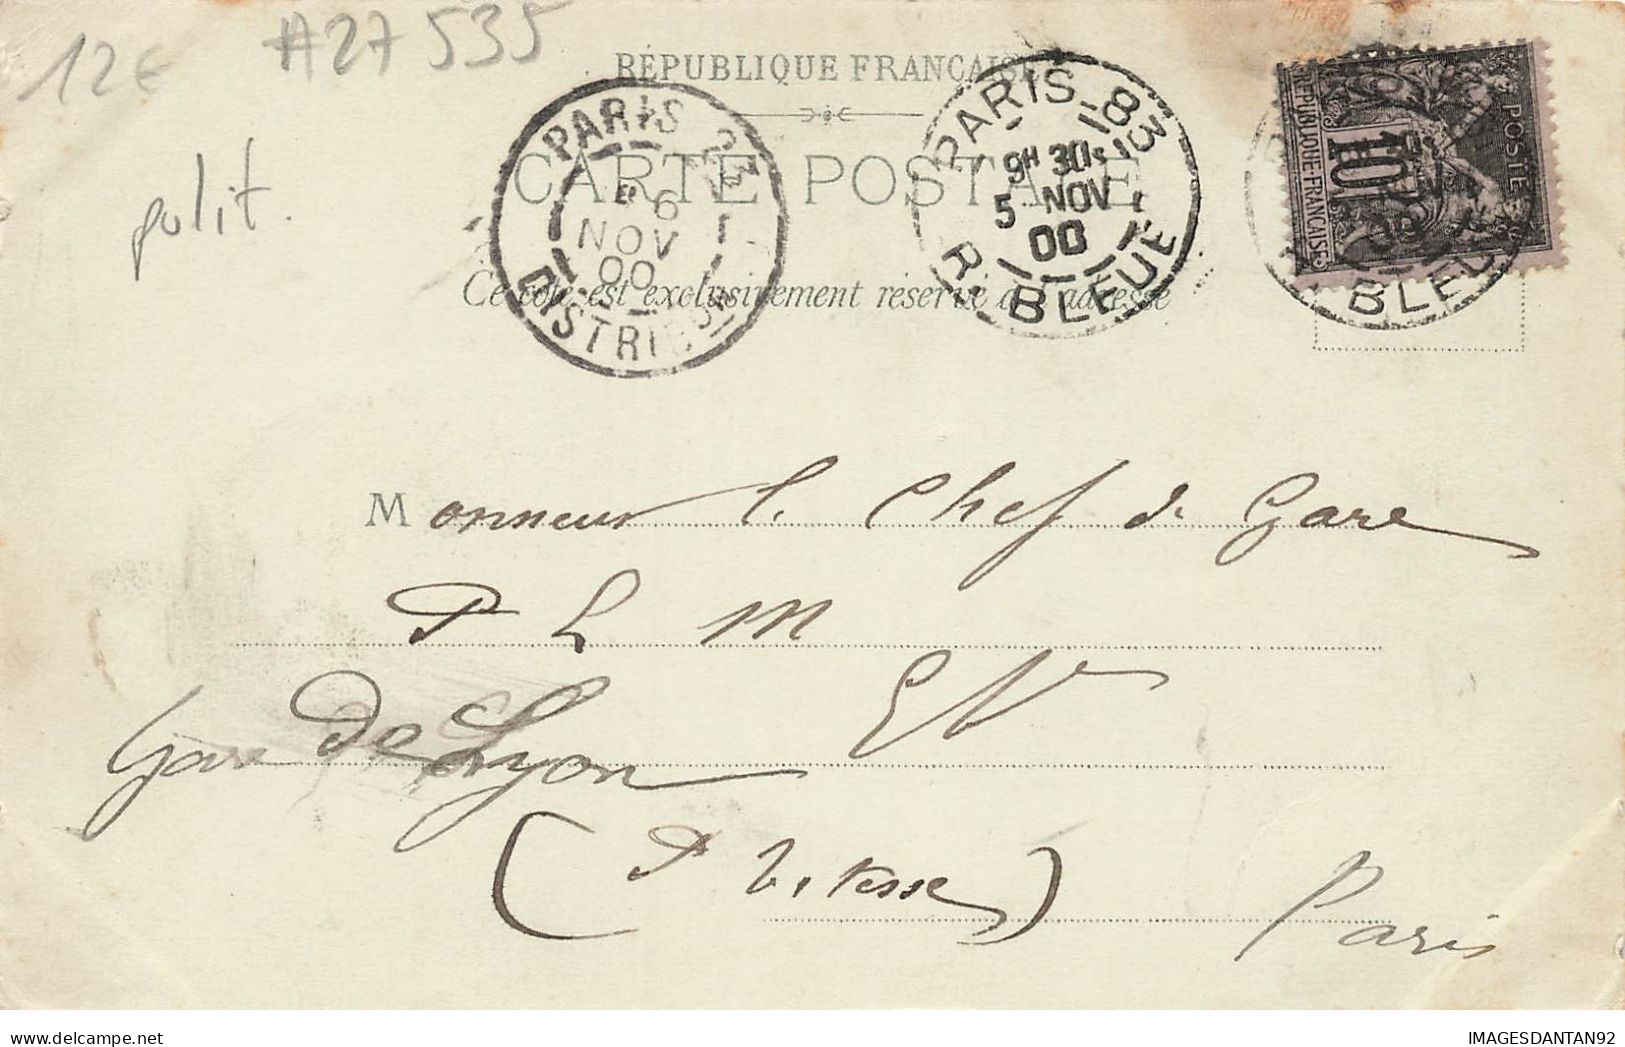 12€
#27 535
polit.
RÉPUBLIQUE FRANÇAISE
CARTE POSTALE
Ce côté est exclusivement réservé à l'adresse
PARIS 23
6
NOV
00
DISTRIBON
PARIS-83
9H 30S
5 NOV
00
R. BLEUE
POSTES
10
REPUBLIQUE-FRANÇAISE
BLEUE
Monsieur le Chef de Gare
P L M
EV
Gare de Lyon
(P Vitesse)
Paris
IMAGESDANTAN92